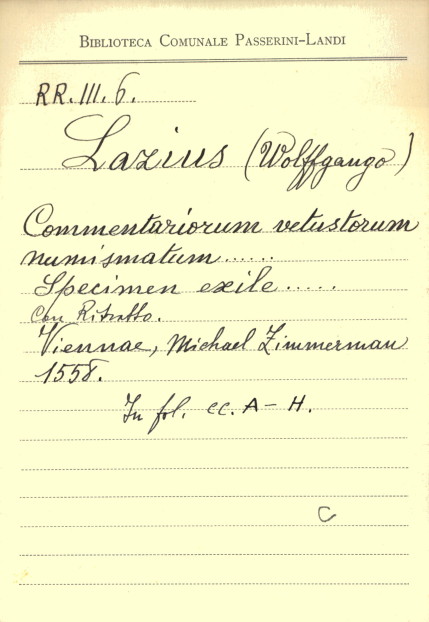 BIBLIOTECA COMUNALE PASSERINI-LANDI
RR. III. 6.
Lazius (Wolffgango)
Commentariorum vetustorum
numismatum ......
Specimen exile .....
Con Ritratto.
Viennae, Michael Zimmerman
1558.
In fol. cc. A - H.
C